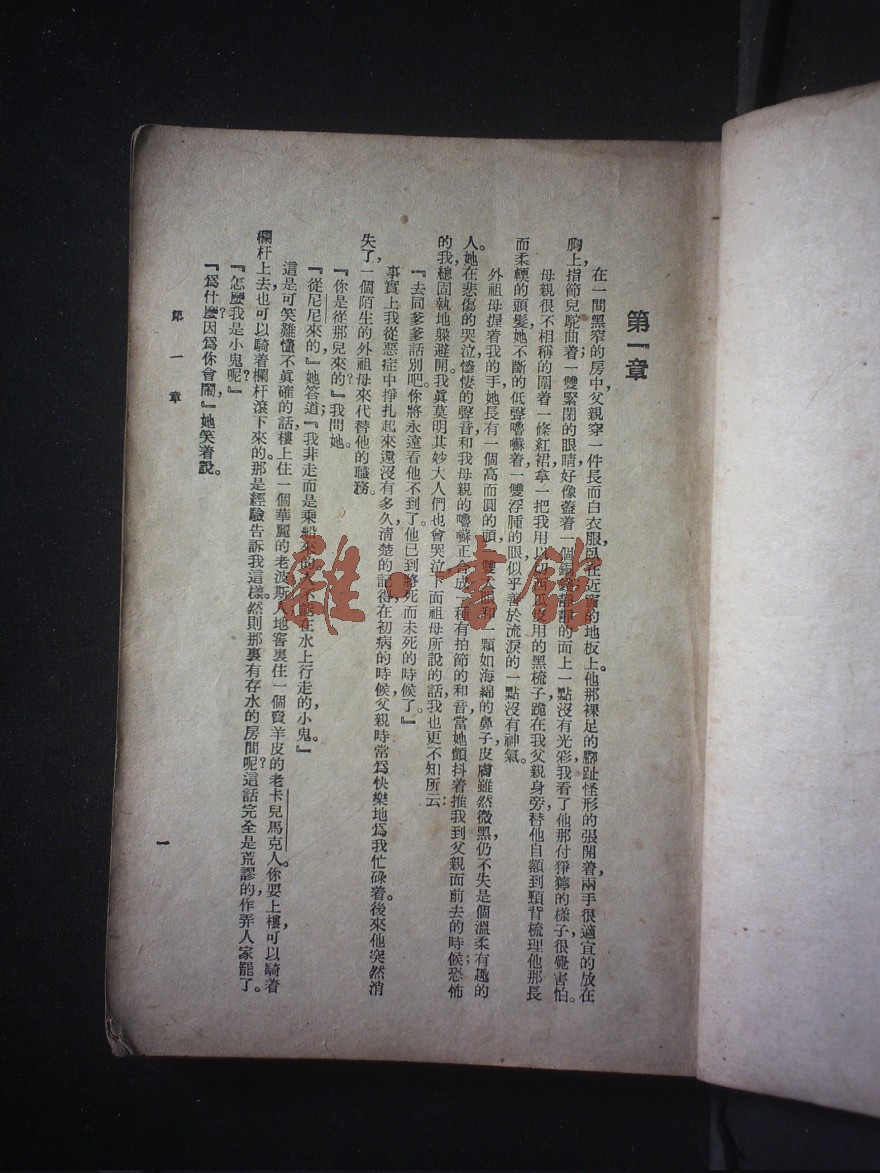 第一章
在一間黑窄的房中父親穿一件長而白衣服臥在近窗的地板上。他那裸足的脚趾怪形的張開着，兩手很適宜的放在
胸上，指節兒駝曲着；一雙緊閉的眼睛好像蓋着一個銅錢靜靜的面上一點沒有光彩，我看了他那付猙獰的樣子，很覺害怕。
母親很不相稱的圍着一條紅裙，拿一把我用以切西瓜皮用的黑梳子跪在我父親身旁，替他自額到頸背梳理他那長
而柔輭的頭髮，她不斷的低聲嚕囌着，一雙浮腫的眼似乎善於流淚的一點沒有神氣。
外祖母捏着我的手，她長有一個高而圓的頭，雙 一顆如海綿的鼻子，皮膚雖然微黑，仍不失是個溫柔有趣的
人。她在悲傷的哭泣，悽悽的聲音和我母親的嚕囌正合成一種有拍節的和音，當她顫抖着推我到父親面前去的時候，恐怖
的我，總固執地躲避開。我眞莫明其妙大人們也會哭泣，下面祖母所說的話，我也更不知所云：
『去同爹爹話別吧。你將永遠看他不到了，他已到將死而未死的時候了。』
事實上我從惡症中掙扎起來還沒有多久，清楚的記得在初病的時候，父親時常爲快樂地爲我忙碌着。後來他突然消
失了，一個陌生的外祖母來代替他的職務。
『你是從那兒來的？』我問她。
『從尼尼來的，』她答道；『我非走而是乘船來的。人不能在水上行走的，小鬼。』
這是可笑難懂不眞確的話，樓上住一個華麗的老波斯人，地窖裏住一個賣羊皮的老卡兒馬克人。你要上樓，可以騎着
欄杆上去，也可以騎着欄杆滾下來的。那是經驗告訴我這樣。然則那裏有存水的房間呢？這話完全是荒謬的，作弄人家罷了。
『怎麽我是小鬼呢？』
『爲什麽？因爲你會鬧，』她笑着說。
第一章
一
雜·書館